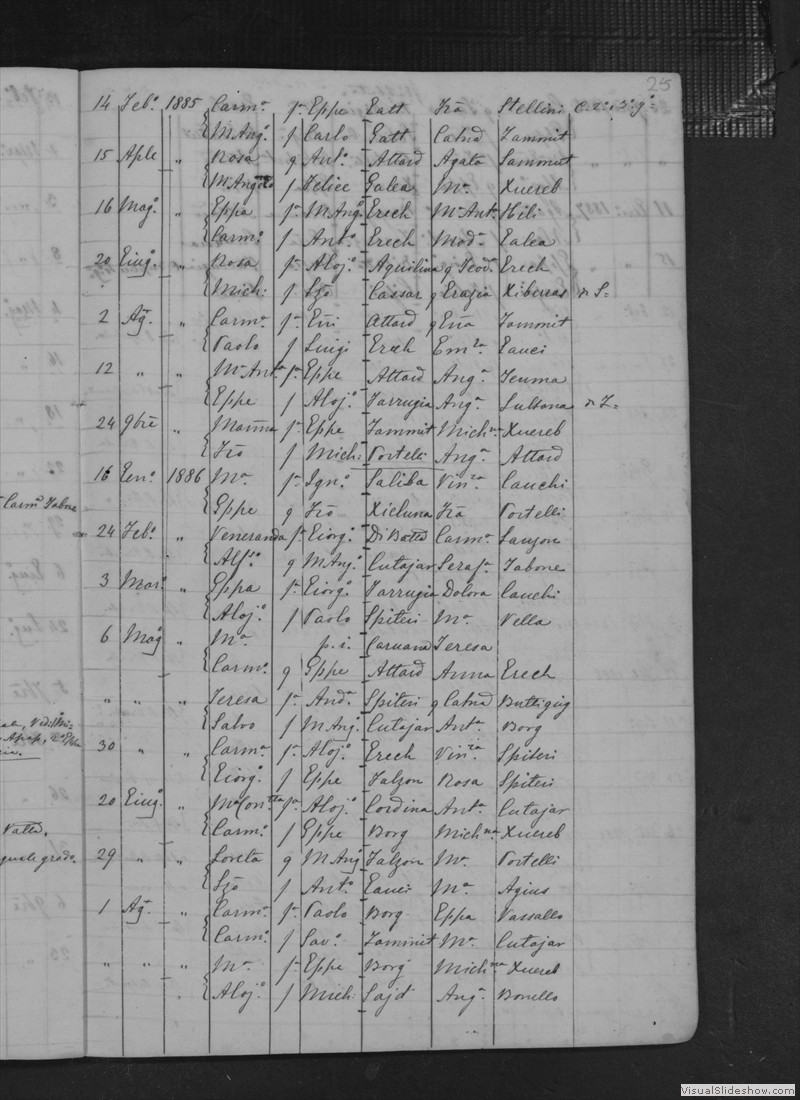 25
14 Feb.o 1885 Carm.a fa Eppe Gatt Fca Stellini
M.Ang.o f Carlo Gatt Catnd Zammit
15 Aple " Rosa q Ant.o Attard Agata Sammut
M.Angelo f Felice Galea M.a Xuereb
16 Mag.o " Eppa fa M.Ang.o Grech M.a Ant.a Hili
Carm.o f Ant.o Grech Mad.a Galea
20 Giug.o " Rosa fa Aloj.o Aquilina q Teod.a Grech
Mich: f Szo Cassar q Grazia Xiberras
2 Ag.o " Carm.a fa Attard q Zammit
Paolo f Luigi Grech Em.na Gauci
12 " " M.a Ant.a fa Eppe Attard Ang.a Zeuma
Eppe f Aloj.o Farrugia Ang.a Sultana
24 9bre " Marina fa Eppe Zammit Mich.na Xuereb
Fco f Mich: Portelli Ang.a Attard
16 Gen.o 1886 M.a fa Ign.o Saliba Vin.za Cauchi
Carm.o Tabone
Eppe q Fco Xicluna Fca Portelli
24 Feb.o " Veneranda fa Giorg.o Carm.a Sauzon
q M.Ang.o Cutajar Seraf.a Tabone
3 Mar.o " Eppa fa Giorg.o Farrugia Dolora Cauchi
Aloj.o f Paolo Spiteri M.a Vella
6 Mag.o " M.a p.i. Caruana Teresa
Carm.o q Eppe Attard Anna Grech
" " " Teresa fa And.a Spiteri q Catnd Buttigieg
Salvo f M.Ang.o Cutajar Ant.a Borg
30 " " Carm.a fa Aloj.o Grech Vin.za Spiteri
Giorg.o f Eppe Falzon Rosa Spiteri
20 Giug.o " M.a Con.tta fa Aloj.o Cordina Ant.a Cutajar
Carm.o f Eppe Borg Mich.na Xuereb
29 " " Loreta q M.Ang.o Falzon M.a Portelli
Szo f Ant.o Gauci M.a Agius
1 Ag.o " Carm.a fa Paolo Borg Eppa Vassallo
Carm.o f Sav.o Zammit M.a Cutajar
" " " M.a fa Eppe Borg Mich.na Xuereb
Aloj.o f Mich: Sajd Ang.a Bonello
VisualSlideshow.com